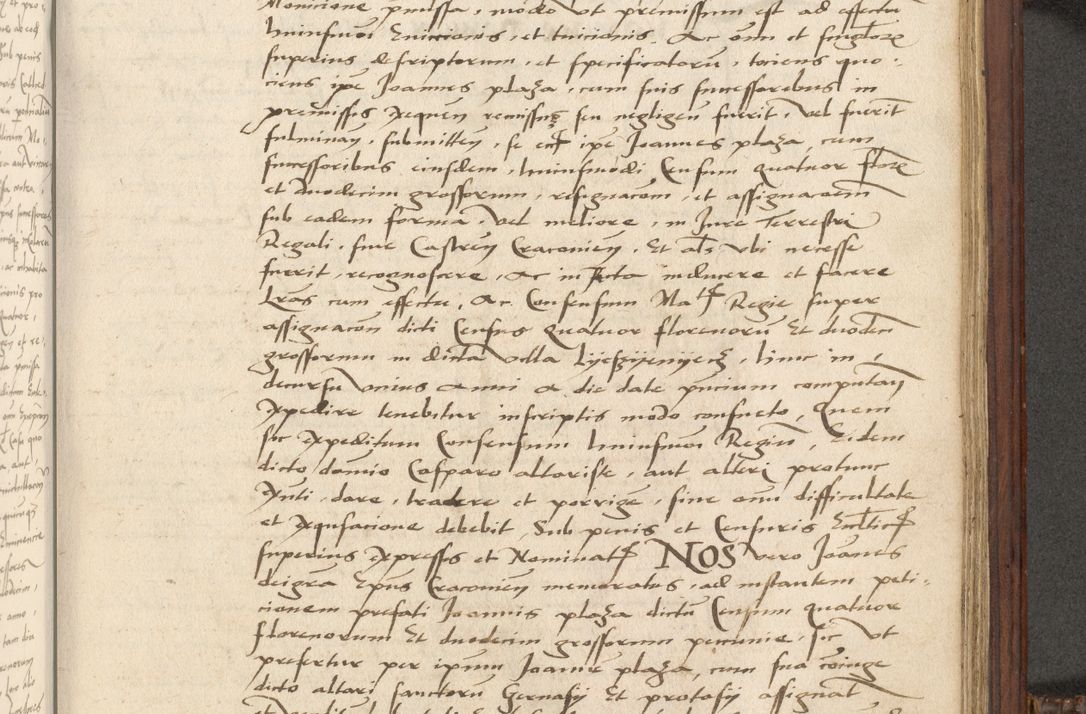 Monicione pmissa, modo vt premissum est ad effectu
huiusmōi Euiccionis, et tuicionis. Ac om̄i et singlorꝝ
superius descriptorum, et specificatorū, tociens quo-
ciens ipe Joannes plaza, cum suis successoribus in
premissis Exequen remissus seu negligen fuerit, vel fuerit
fulminan, submitten, se ipe Joannes plaza, cum
successoribus eiusdem, huiusmodi Censum quatuor flore
et duodecim grossorum, resignacōm, et assignacōem
sub eadem forma, vel meliore, in Jure Terrestri
Regali, siue Castren Cracouien, Et als vbi necesse
fuerit, recognoscere, Ac in Acta inducere et facere
Lras cum effectu, Ac Consensum Matis Regie super
assignacōn dicti Census quatuor florenorū Et duodeci
grossorum in dicta villa, hinc in
decursu vnius anni a die date pncium computan
Expedire tenebitur inscriptis modo consueto, Quem
sic Expeditum Consensum huiusmōi Regiū, Eidem
dicto domino Casparo altariste, aut alteri protunc
Exnti, dare, tradere et porrige, sine om̄i difficultate
et Exqusacione debebit, Sub penis et Censuris Ecclticis
superius Expressis et Nominatis NOS vero Joanes
deigra Epus Cracouien memoratus, ad instantem peti-
cionem prefati Joannis plaza dictū Censum quatuor
florenorum Et duodecim grossorum pecunie, sic vt
prefertur per ipsum Joanne plaza, cum sua cōiuge
dicto altari sanctorū Geruasy Et protasy assignat